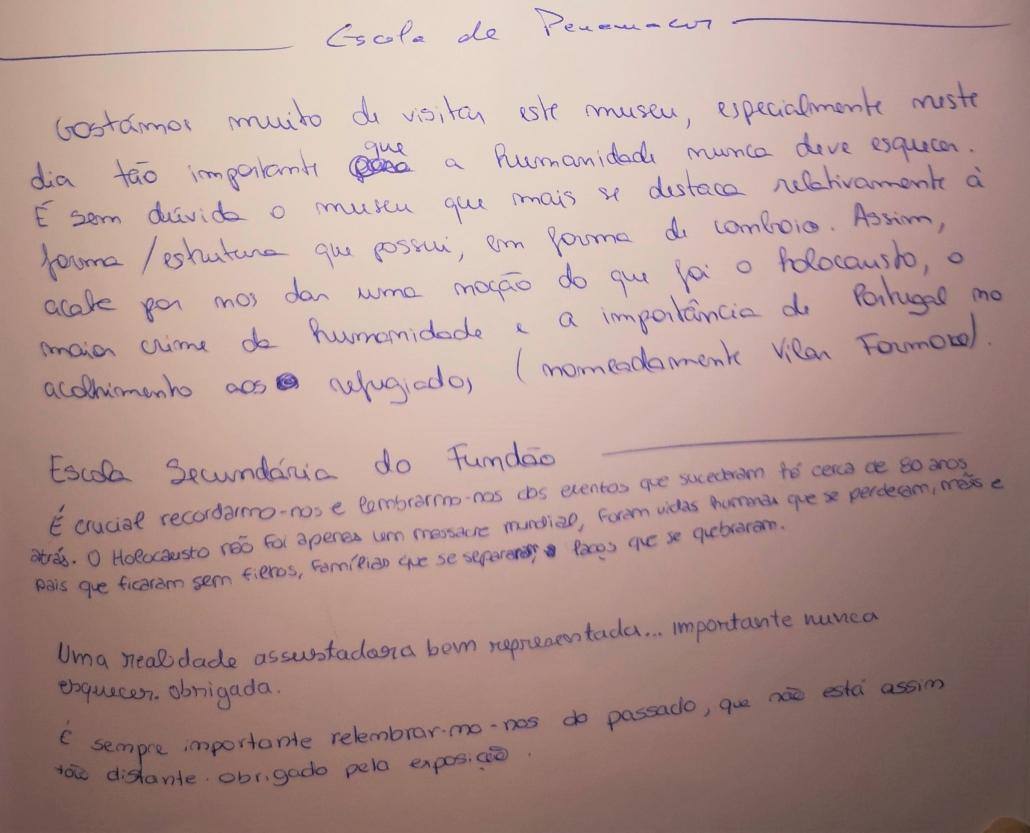 Escola de Penamacor
Gostámos muito de visitar este museu, especialmente neste
dia tão importante que a humanidade nunca deve esquecer.
É sem dúvida o museu que mais se destaca relativamente à
forma / estrutura que possui, em forma de comboio. Assim,
acaba por nos dar uma noção do que foi o holocausto, o
maior crime da humanidade e a importância de Portugal no
acolhimento aos refugiados (nomeadamente Vilar Formoso).
Escola Secundária do Fundão
É crucial recordarmo-nos e lembrarmo-nos dos eventos que sucederam há cerca de 80 anos
atrás. O Holocausto não foi apenas um massacre mundial, foram vidas humanas que se perderam, mães e
pais que ficaram sem filhos, famílias que se separaram, laços que se quebraram.
Uma realidade assustadora bem representada... importante nunca
esquecer. obrigada.
É sempre importante relembrar-mo-nos do passado, que não está assim
tão distante. obrigado pela exposição.